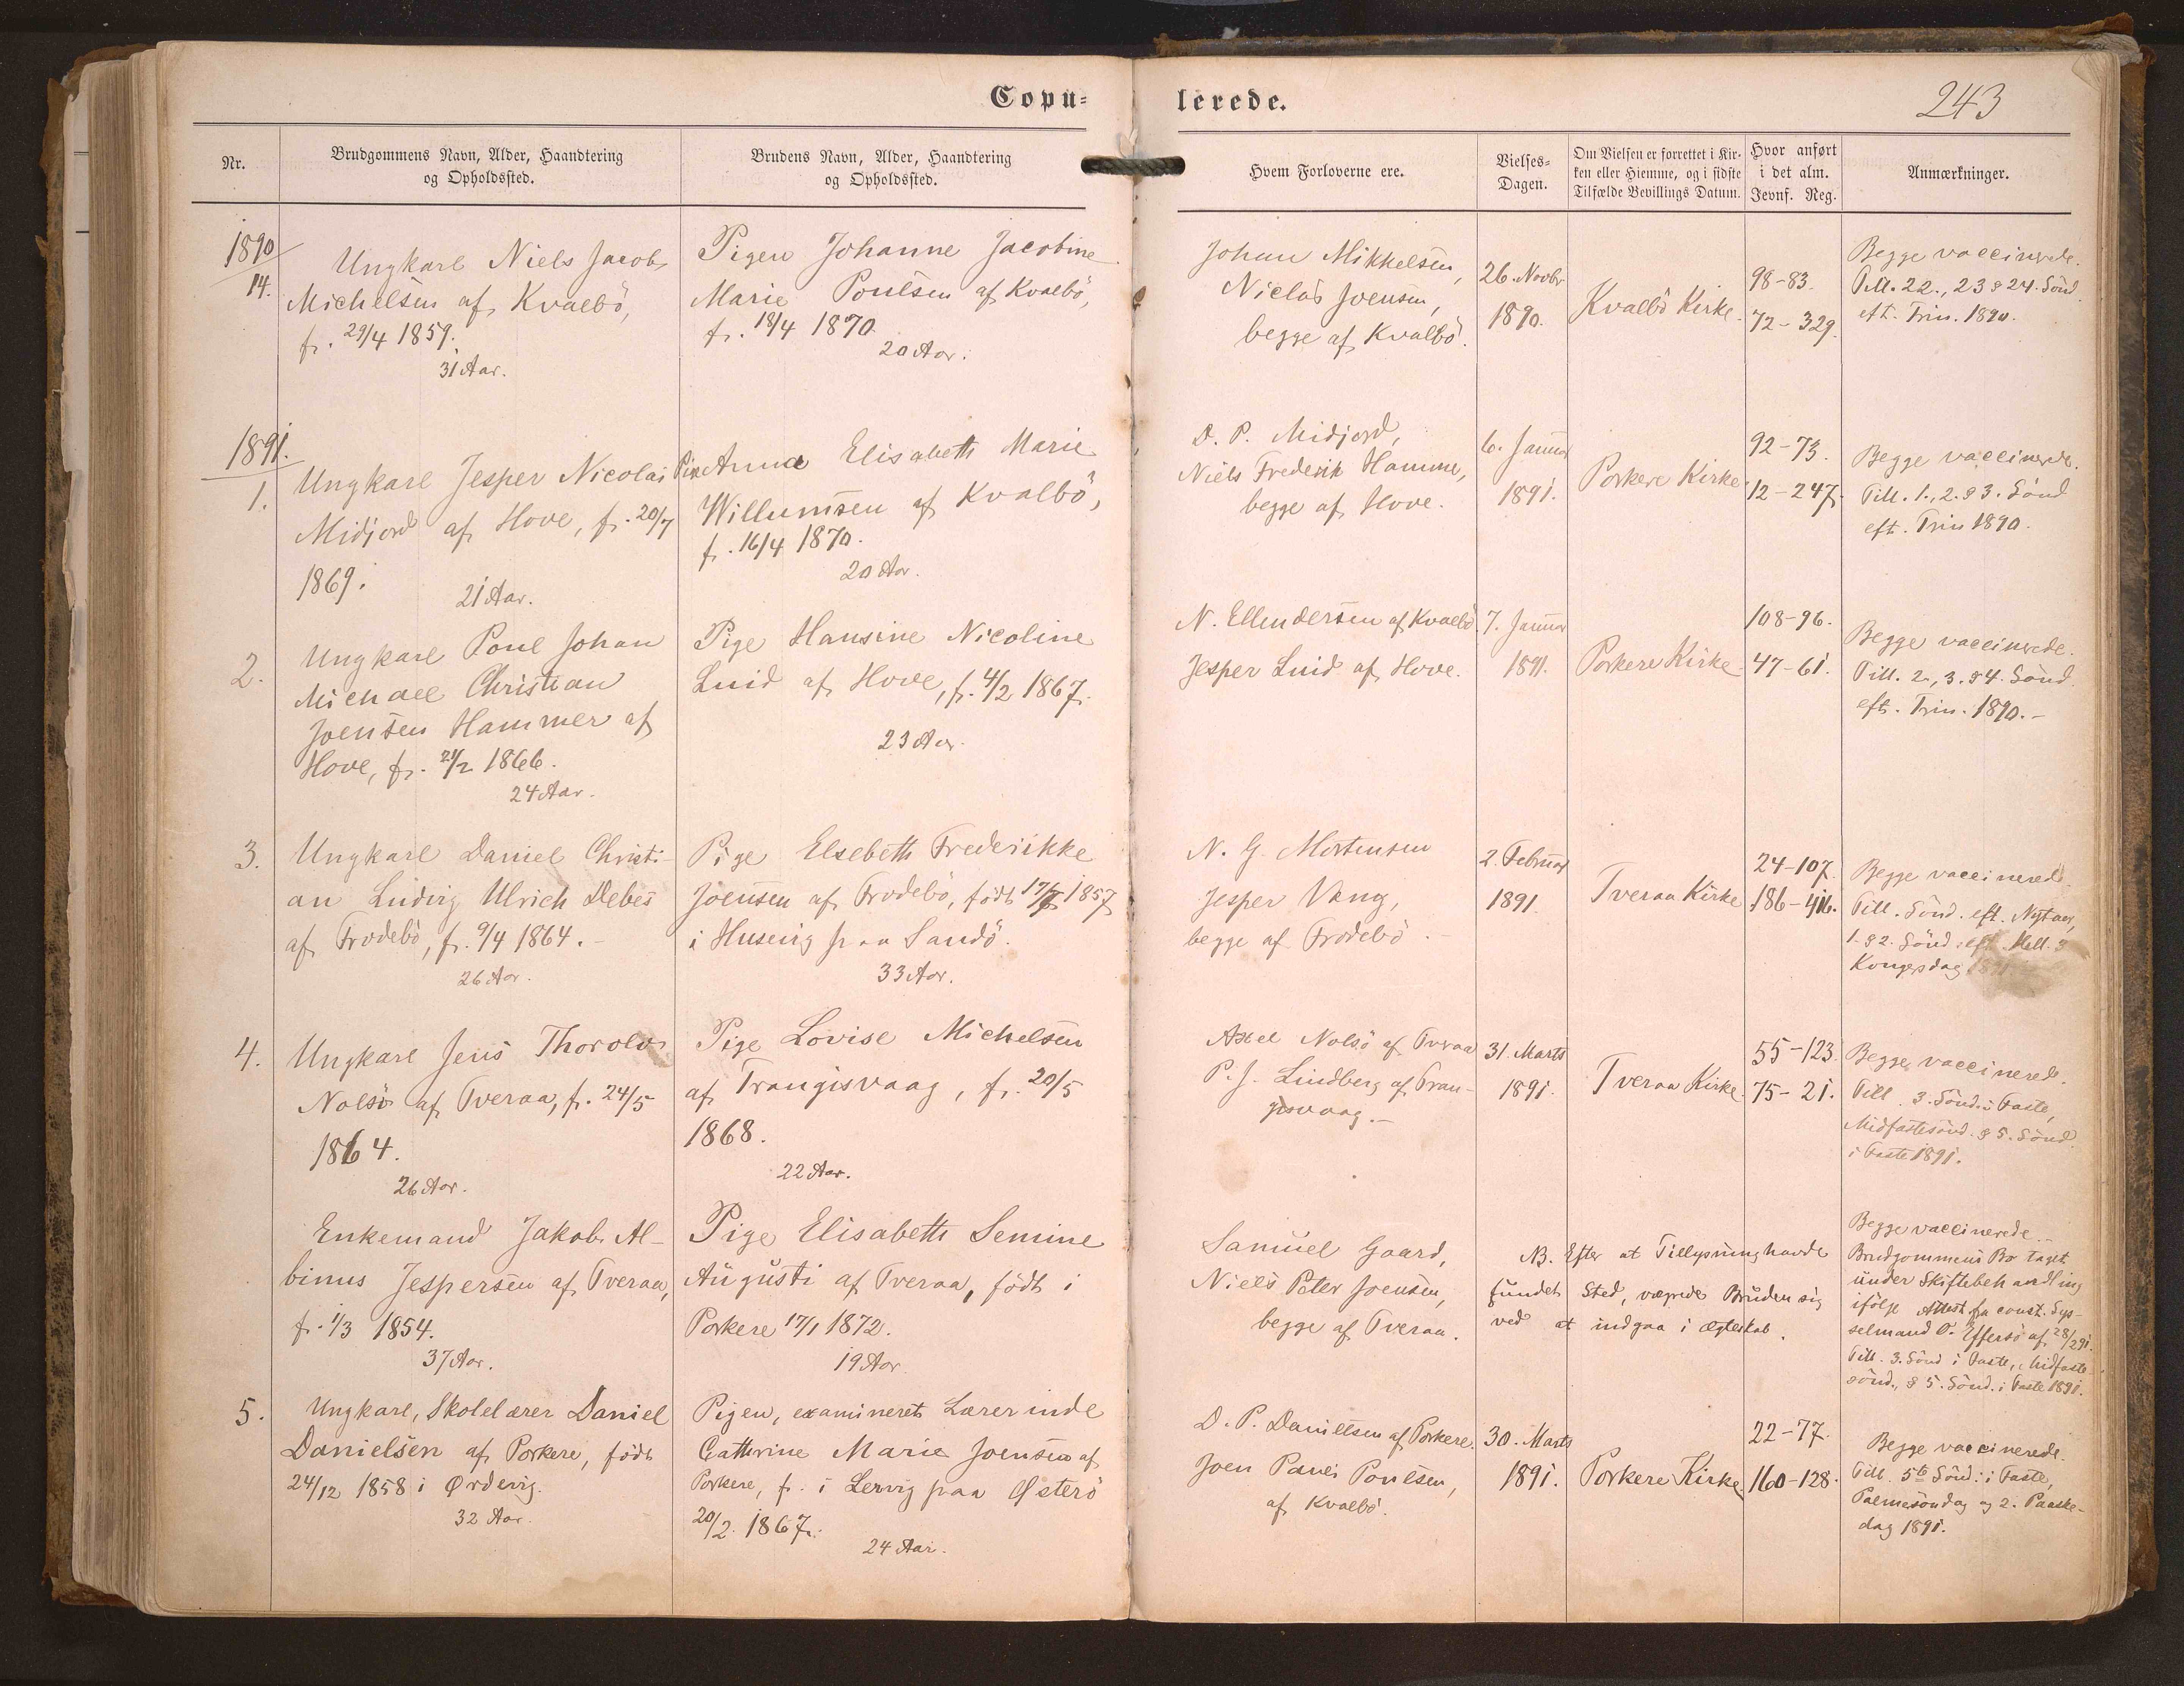 Copu=
lerede.
243
Nr.
Brudgommens Navn, Alder, Haandtering
og Opholdssted.
Brudens Navn, Alder, Haandtering
og Opholdssted.
Hvem Forloverne ere.
Vielses-
Dagen.
Om Vielsen er forrettet i Kir-
ken eller Hiemme, og i sidste
Tilfælde Bevillings Datum.
Hvor anført
i det alm.
Jevnf. Reg.
Anmærkninger.
1890
14.
Ungkarl Niels Jacob
Michelsen af Kvalbö,
f. 29/4 1859.
31 Aar.
Pigen Johanne Jacobine
Marie Poulsen af Kvalbö,
f. 18/4 1870
20 Aar.
Johan Mikkelsen,
Niclas Joensen,
begge af Kvalbö.
26. Novbr
1890.
Kvalbö Kirke.
98-83.
72-329.
Begge vaccinerede.
Till. 22., 23 & 24. Sönd.
eft. Trin. 1890.
1891.
1.
Ungkarl Jesper Nicolai
Midjord af Hove, f. 20/7
1869.
21 Aar.
Pige Anna Elisabeth Marie
Willumsen af Kvalbö,
f. 16/4 1870.
20 Aar.
D. P. Midjord,
Niels Frederik Hammer,
begge af Hove.
6. Januar
1891.
Porkere Kirke
92-73.
12-247.
Begge vaccinerede.
Till. 1., 2. & 3. Sönd
eft. Trin 1890.
2.
Ungkarl Poul Johan
Michael Christian
Joensen Hammer af
Hove, f. 21/2 1866.
24 Aar.
Pige Hansine Nicoline
Luid af Hove, f. 4/2 1867.
23 Aar.
N. Ellendersen af Kvalbö.
Jesper Luid af Hove.
7. Januar
1891.
Porkere Kirke.
108-96.
47-61.
Begge vaccinerede.
Till. 2., 3. & 4. Sönd.
eft. Trin. 1890.-
3.
Ungkarl Daniel Christi-
an Ludvig Ulrich Debes
af Frodebö, f. 9/4 1864.-
26 Aar.
Pige Elsebeth Frederikke
Joensen af Frodebö, födt 1857
i Husevig paa Sandö.
33 Aar.
N. G. Mortensen
Jesper Vang,
begge af Frodebö.-
2. Februar
1891.
Tveraa Kirke
24-107.
186-416.
Begge vaccinerede.
Till. Sönd. eft. Nytaar,
1. & 2. Sönd. eft. Hell. 3
Kongersdag
4.
Ungkarl Jens Thorolv
Nolsö af Tveraa, f. 24/5
1864.
26 Aar.
Pige Lovise Michelsen
af Trangisvaag, f. 20/5
1868.
22 Aar.
Axel Nolsö af Tveraa
P. J. Lindberg af Tran-
gisvaag.-
31. Marts
1891.
Tveraa Kirke.
55-123.
75-21.
Begge vaccinerede.
Till. 3. Sönd. i Faste,
Midfastesönd. & 5. Sönd.
i Faste 1891.
Enkemand Jakob Al-
binus Jespersen af Tveraa,
f. 1/3 1854.
37 Aar.
Pige Elisabeth Semine
Augusti af Tveraa, födt i
Porkere 17/1 1872.
19 Aar
Samuel Gaard,
Niels Peter Joensen,
begge af Tveraa.
NB. Efter at Tillysning havde
fundet Sted, vægrede Bruden sig
ved at indgaa i Ægteskab.
Begge vaccinerede.-
Brudgommens Bo taget
under Skiftebehandling
ifölge Attest fra const. Sys-
selmand O. Effersö af 28/2 91.
Till. 3. Sönd i Faste, Midfaste-
sönd., & 5. Sönd. i Faste 1891.
5.
Ungkarl, Skolelærer Daniel
Danielsen af Porkere, födt
24/12 1858 i Ørdevig.
32 Aar.
Pigen, examineret Lærerinde
Cathrine Marie Joensen af
Porkere, f. i Lervig paa Østerö
20/2. 1867.
24 Aar.
D. P. Danielsen af Porkere.
Joen Poulsen,
af Kvalbö.
30. Marts
1891.
Porkere Kirke.
22-77.
160-128.
Begge vaccinerede.
Till. 5te Sönd. i Faste,
Palmesöndag og 2. Paaske-
dag 1891.